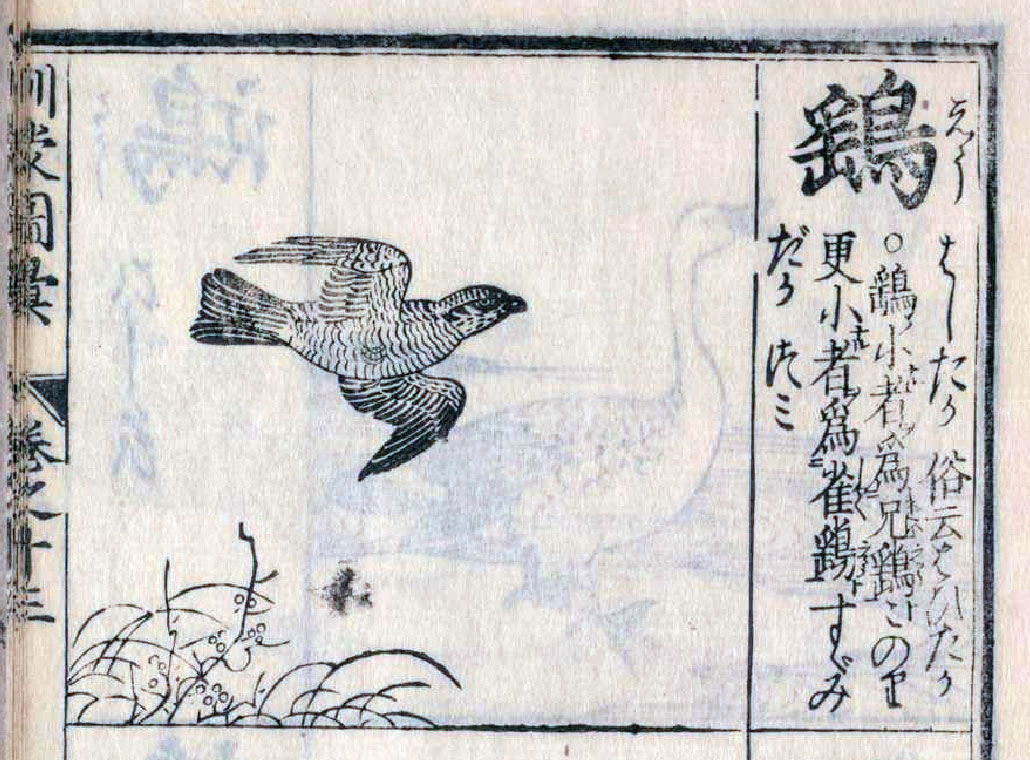 鷂
えう
はしたか 俗云はひたか
○鷂小者爲兄鷂このり
更小者爲雀鷂すゞみ
だか つミ
訓蒙圖彙 卷之十三